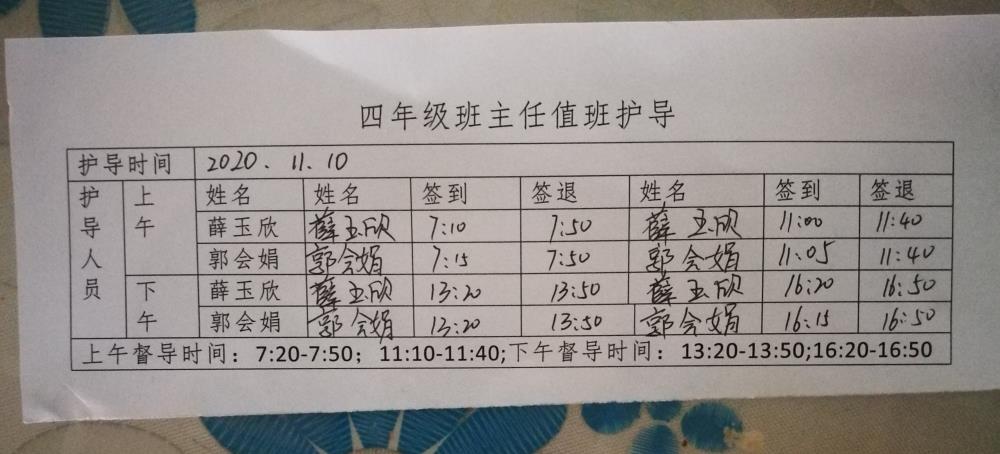 四年级班主任值班护导
护导时间 2020.11.10
护导人员 上午 姓名 姓名 签到 签退 姓名 签到 签退
薛玉欣 薛玉欣 7:10 7:50 薛玉欣 11:00 11:40
郭会娟 郭会娟 7:15 7:50 郭会娟 11:05 11:40
下午 薛玉欣 薛玉欣 13:20 13:50 薛玉欣 16:20 16:50
郭会娟 郭会娟 13:20 13:50 郭会娟 16:15 16:50
上午督导时间：7:20-7:50；11:10-11:40;下午督导时间：13:20-13:50;16:20-16:50